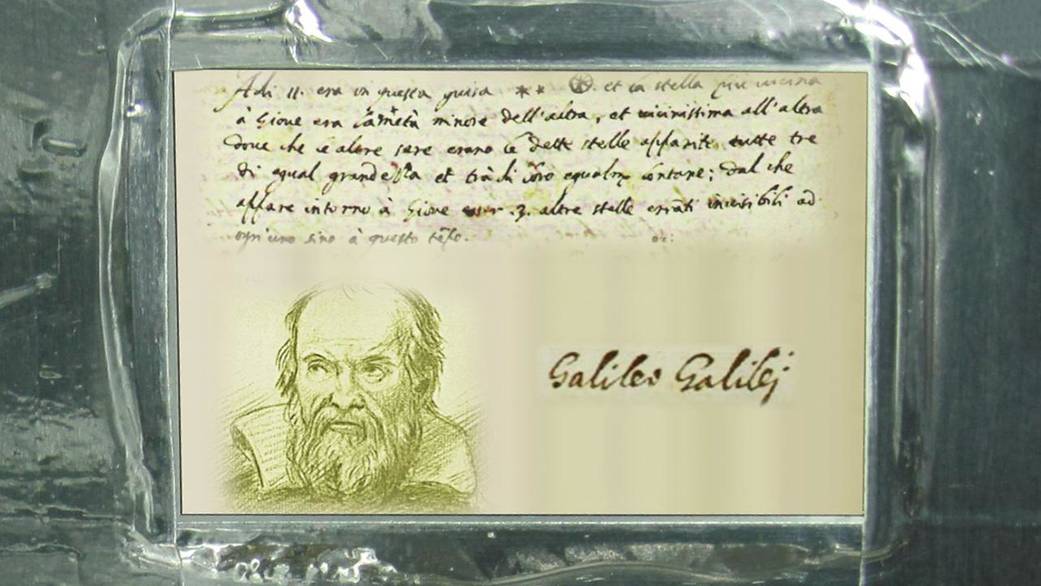 Adi 11. era in questa guisa ** et la stella più vicina
à Giove era la metà minore dell'altra, et vicinissima all'altra
dove che le altre sere erano le dette stelle apparite tutte tre
di equal grandezza et trà di loro equalm̃ lontane; dal che
appare intorno à Giove esser .3. altre stelle errāti invisibili ad
ogn'uno sino à questo tēpo.
Galileo Galilej